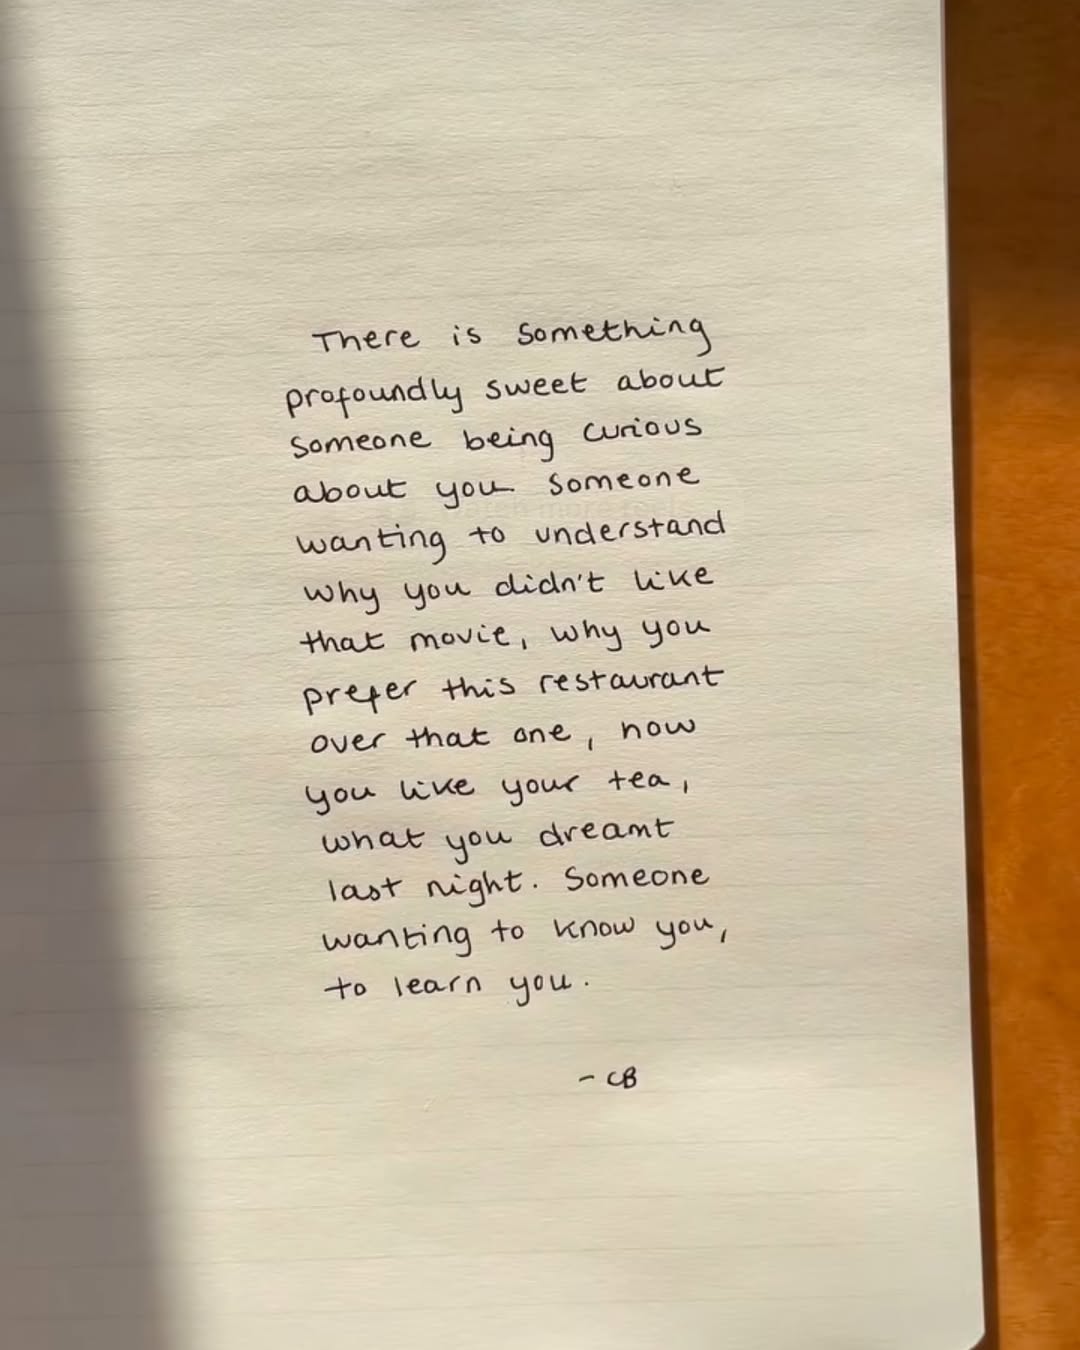 There is something
profoundly sweet about
someone being curious
about you someone
wanting to understand
why you didn't like
that movie, why you
prefer this restaurant
over that one, how
you like your tea,
what you dreamt
last night. Someone
wanting to know you,
to learn you.
- CB